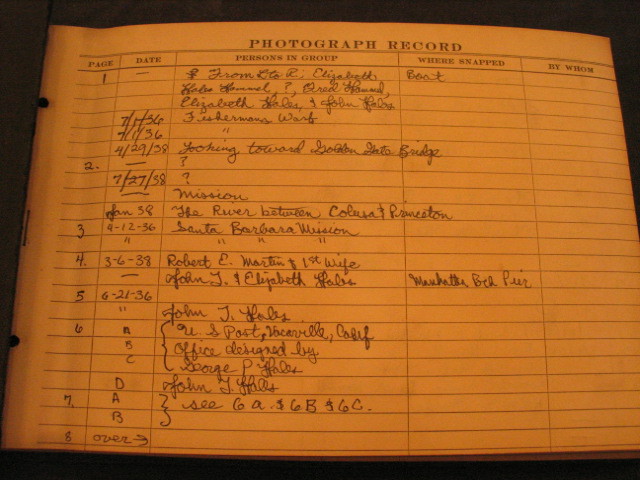 PHOTOGRAPH RECORD
PAGE DATE PERSONS IN GROUP WHERE SNAPPED BY WHOM
1 — From L to R; Elizabeth Boat
Hales Hammel, ?, Hammel,
Elizabeth Hales, & John Hales
7/1/36 Fishermans Warf
7/1/36 "
4/29/38 Looking toward Golden Gate Bridge
2. — ?
7/27/38 ?
— Mission
Jan 38 The River between Colusa & Princeton
3 9-12-36 Santa Barbara Mission
" " " "
4. 3-6-38 Robert E. Martin & 1st Wife
— John T. & Elizabeth Hales Manhattan Bch Pier
5 6-21-36
" John T. Hales
6 A U. S Post, Vacaville, Calif
B Office designed by
C George P. Hales
D John T. Hales
7. A see 6 a. & 6 B & 6 C.
B
8 over→